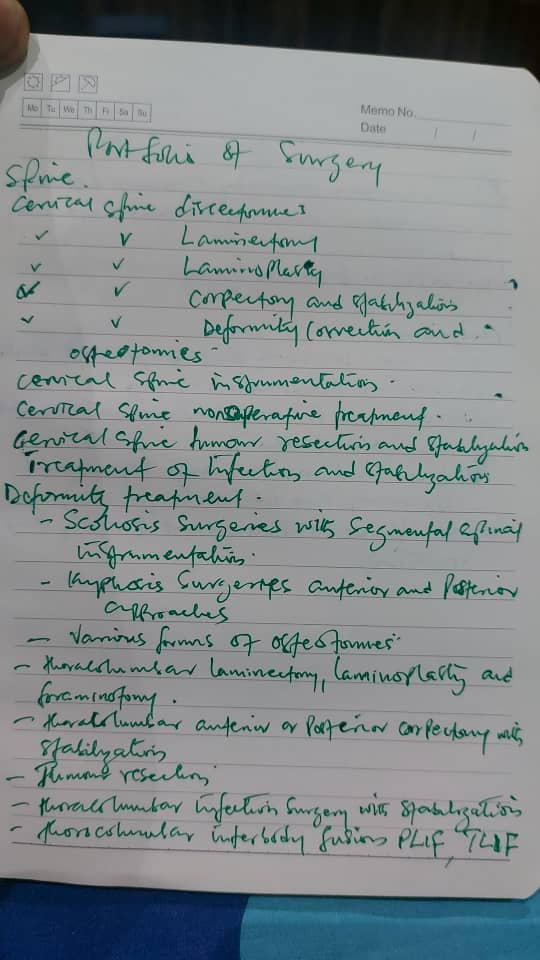 Mo Tu We Th Fr Sa Su
Memo No.
Date / /
Portfolio of Surgery
Spine.
Cervical spine discectomies
✓ ✓ Laminectomy
✓ ✓ Laminoplasty
✓ ✓ Corpectomy and stabilization
✓ ✓ Deformity correction and
osteotomies
Cervical spine instrumentation.
Cervical spine nonoperative treatment.
Cervical spine tumour resection and stabilization
Treatment of infection and stabilization
Deformity treatment.
- Scoliosis surgeries with segmental spinal
instrumentation.
- Kyphosis surgeries anterior and posterior
approaches
- Various forms of osteotomies
- thoracolumbar laminectomy, laminoplasty and
foraminotomy.
- thoracolumbar anterior or posterior corpectomy with
stabilization
- Tumour resection
- thoracolumbar infection surgery with stabilization
- thoracolumbar interbody fusion PLIF, TLIF